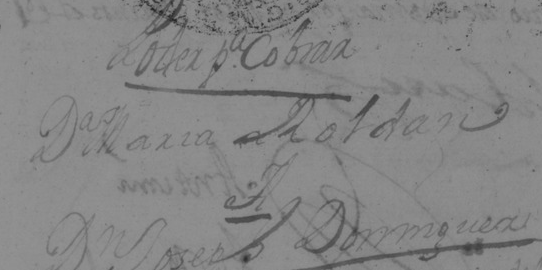 Poder pª Cobrar
Dª Maria Roldan
A
Dn Joseph Dominguez